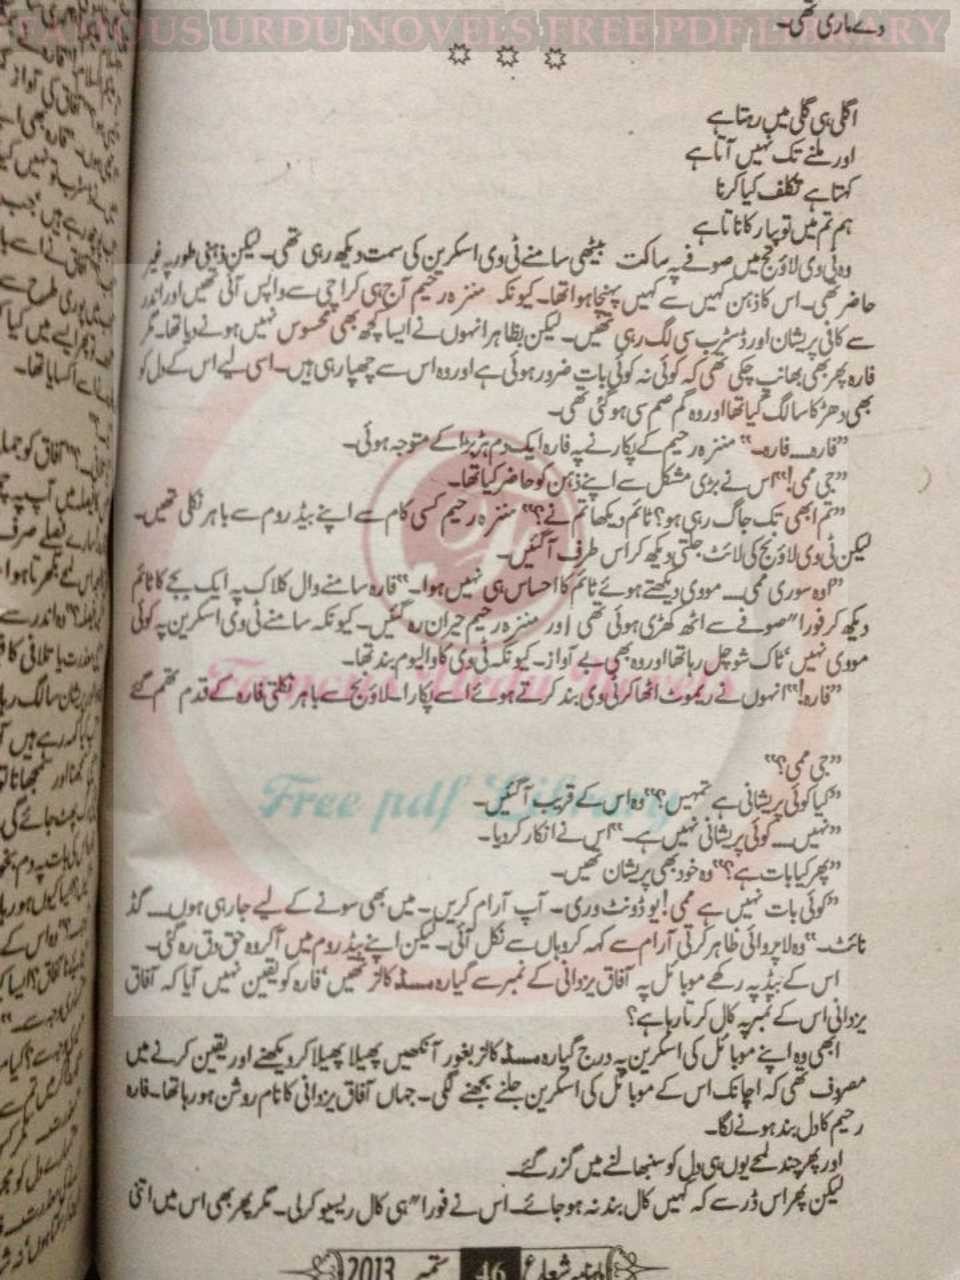 FAMOUS URDU NOVELS FREE PDF LIBRARY
دے ماری تھی۔
اگلی ہی گلی میں رہتا ہے
اور ملنے تک نہیں آتا ہے
کہتا ہے تکلف کیا کرنا
ہم تم میں تو پیار کا ناتا ہے
وہ ٹی وی لاؤنج میں صوفے پہ ساکت بیٹھی سامنے ٹی وی اسکرین کی سمت دیکھ رہی تھی۔ لیکن ذہنی طور پہ غیر
حاضر تھی۔ اس کا ذہن کہیں سے کہیں پہنچا ہوا تھا۔ کیونکہ منزہ رحیم آج ہی کراچی سے واپس آئی تھیں اور اندر
سے کافی پریشان اور ڈسٹرب سی لگ رہی تھیں۔ لیکن بظاہر انہوں نے ایسا کچھ بھی محسوس نہیں ہونے دیا تھا۔ مگر
فارہ پھر بھی بھانپ چکی تھی کہ کوئی نہ کوئی بات ضرور ہوئی ہے اور وہ اس سے چھپا رہی ہیں۔ اسی لیے اس کے دل کو
بھی دھڑکا سا لگ گیا تھا اور وہ گم صم سی ہو گئی تھی۔
”فارہ۔۔۔ فارہ۔“ منزہ رحیم کے پکارنے پہ فارہ ایک دم ہڑبڑا کے متوجہ ہوئی۔
”جی ممی!“ اس نے بڑی مشکل سے اپنے ذہن کو حاضر کیا تھا۔
”تم ابھی تک جاگ رہی ہو؟ ٹائم دیکھا تم نے؟“ منزہ رحیم کسی کام سے اپنے بیڈ روم سے باہر نکلی تھیں۔
لیکن ٹی وی لاؤنج کی لائٹ جلتی دیکھ کر اس طرف آ گئیں۔
”اوہ سوری ممی۔۔۔ مووی دیکھتے ہوئے ٹائم کا احساس ہی نہیں ہوا۔“ فارہ سامنے وال کلاک پہ ایک بجے کا ٹائم
دیکھ کر فوراً صوفے سے اٹھ کھڑی ہوئی تھی اور منزہ رحیم حیران رہ گئیں۔ کیونکہ سامنے ٹی وی اسکرین پہ کوئی
مووی نہیں‘ ٹاک شو چل رہا تھا اور وہ بھی بے آواز۔ کیونکہ ٹی وی کا والیوم بند تھا۔
”فارہ!“ انہوں نے ریموٹ اٹھا کر ٹی وی بند کرتے ہوئے اسے پکارا۔ لاؤنج سے باہر نکلتی فارہ کے قدم تھم گئے
Famous Urdu Novels
”جی ممی؟“
Free pdf Library
”کیا کوئی پریشانی ہے تمہیں؟“ وہ اس کے قریب آ گئیں۔
”نہیں۔۔۔ کوئی پریشانی نہیں ہے۔“ اس نے انکار کر دیا۔
”پھر کیا بات ہے؟“ وہ خود بھی پریشان تھیں۔
”کوئی بات نہیں ہے ممی! یو ڈونٹ وری۔ آپ آرام کریں۔ میں بھی سونے کے لیے جا رہی ہوں۔۔۔ گڈ
نائٹ۔“ وہ لاپروائی ظاہر کرتی آرام سے کہہ کر وہاں سے نکل آئی۔ لیکن اپنے بیڈ روم میں آ کر وہ حق دق رہ گئی۔
اس کے بیڈ پہ رکھے موبائل پہ آفاق یزدانی کے نمبر سے گیارہ مسڈ کالز تھیں‘ فارہ کو یقین نہیں آیا کہ آفاق
یزدانی اس کے نمبر پہ کال کرتا رہا ہے؟
ابھی وہ اپنے موبائل کی اسکرین پہ درج گیارہ مسڈ کالز بغور آنکھیں پھیلا پھیلا کر دیکھنے اور یقین کرنے میں
مصروف تھی کہ اچانک اس کے موبائل کی اسکرین جلنے بجھنے لگی۔ جہاں آفاق یزدانی کا نام روشن ہو رہا تھا۔ فارہ
رحیم کا دل بند ہونے لگا۔
اور پھر چند لمحے یوں ہی دل کو سنبھالنے میں گزر گئے۔
لیکن پھر اس ڈر سے کہ کہیں کال بند نہ ہو جائے۔ اس نے فوراً ہی کال ریسیو کر لی۔ مگر پھر بھی اس میں اتنی
ماہنامہ شعاع 46 ستمبر 2013